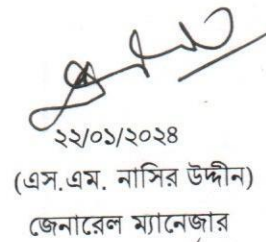 ২২/০১/২০২৪
(এস.এম. নাসির উদ্দীন)
জেনারেল ম্যানেজার